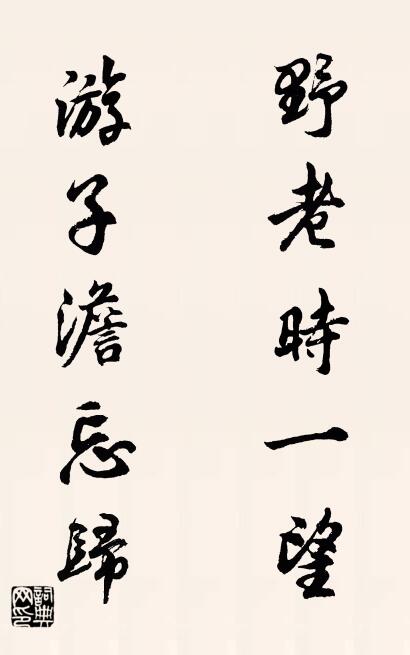 野老時一望
游子澹忘歸
詞典网印